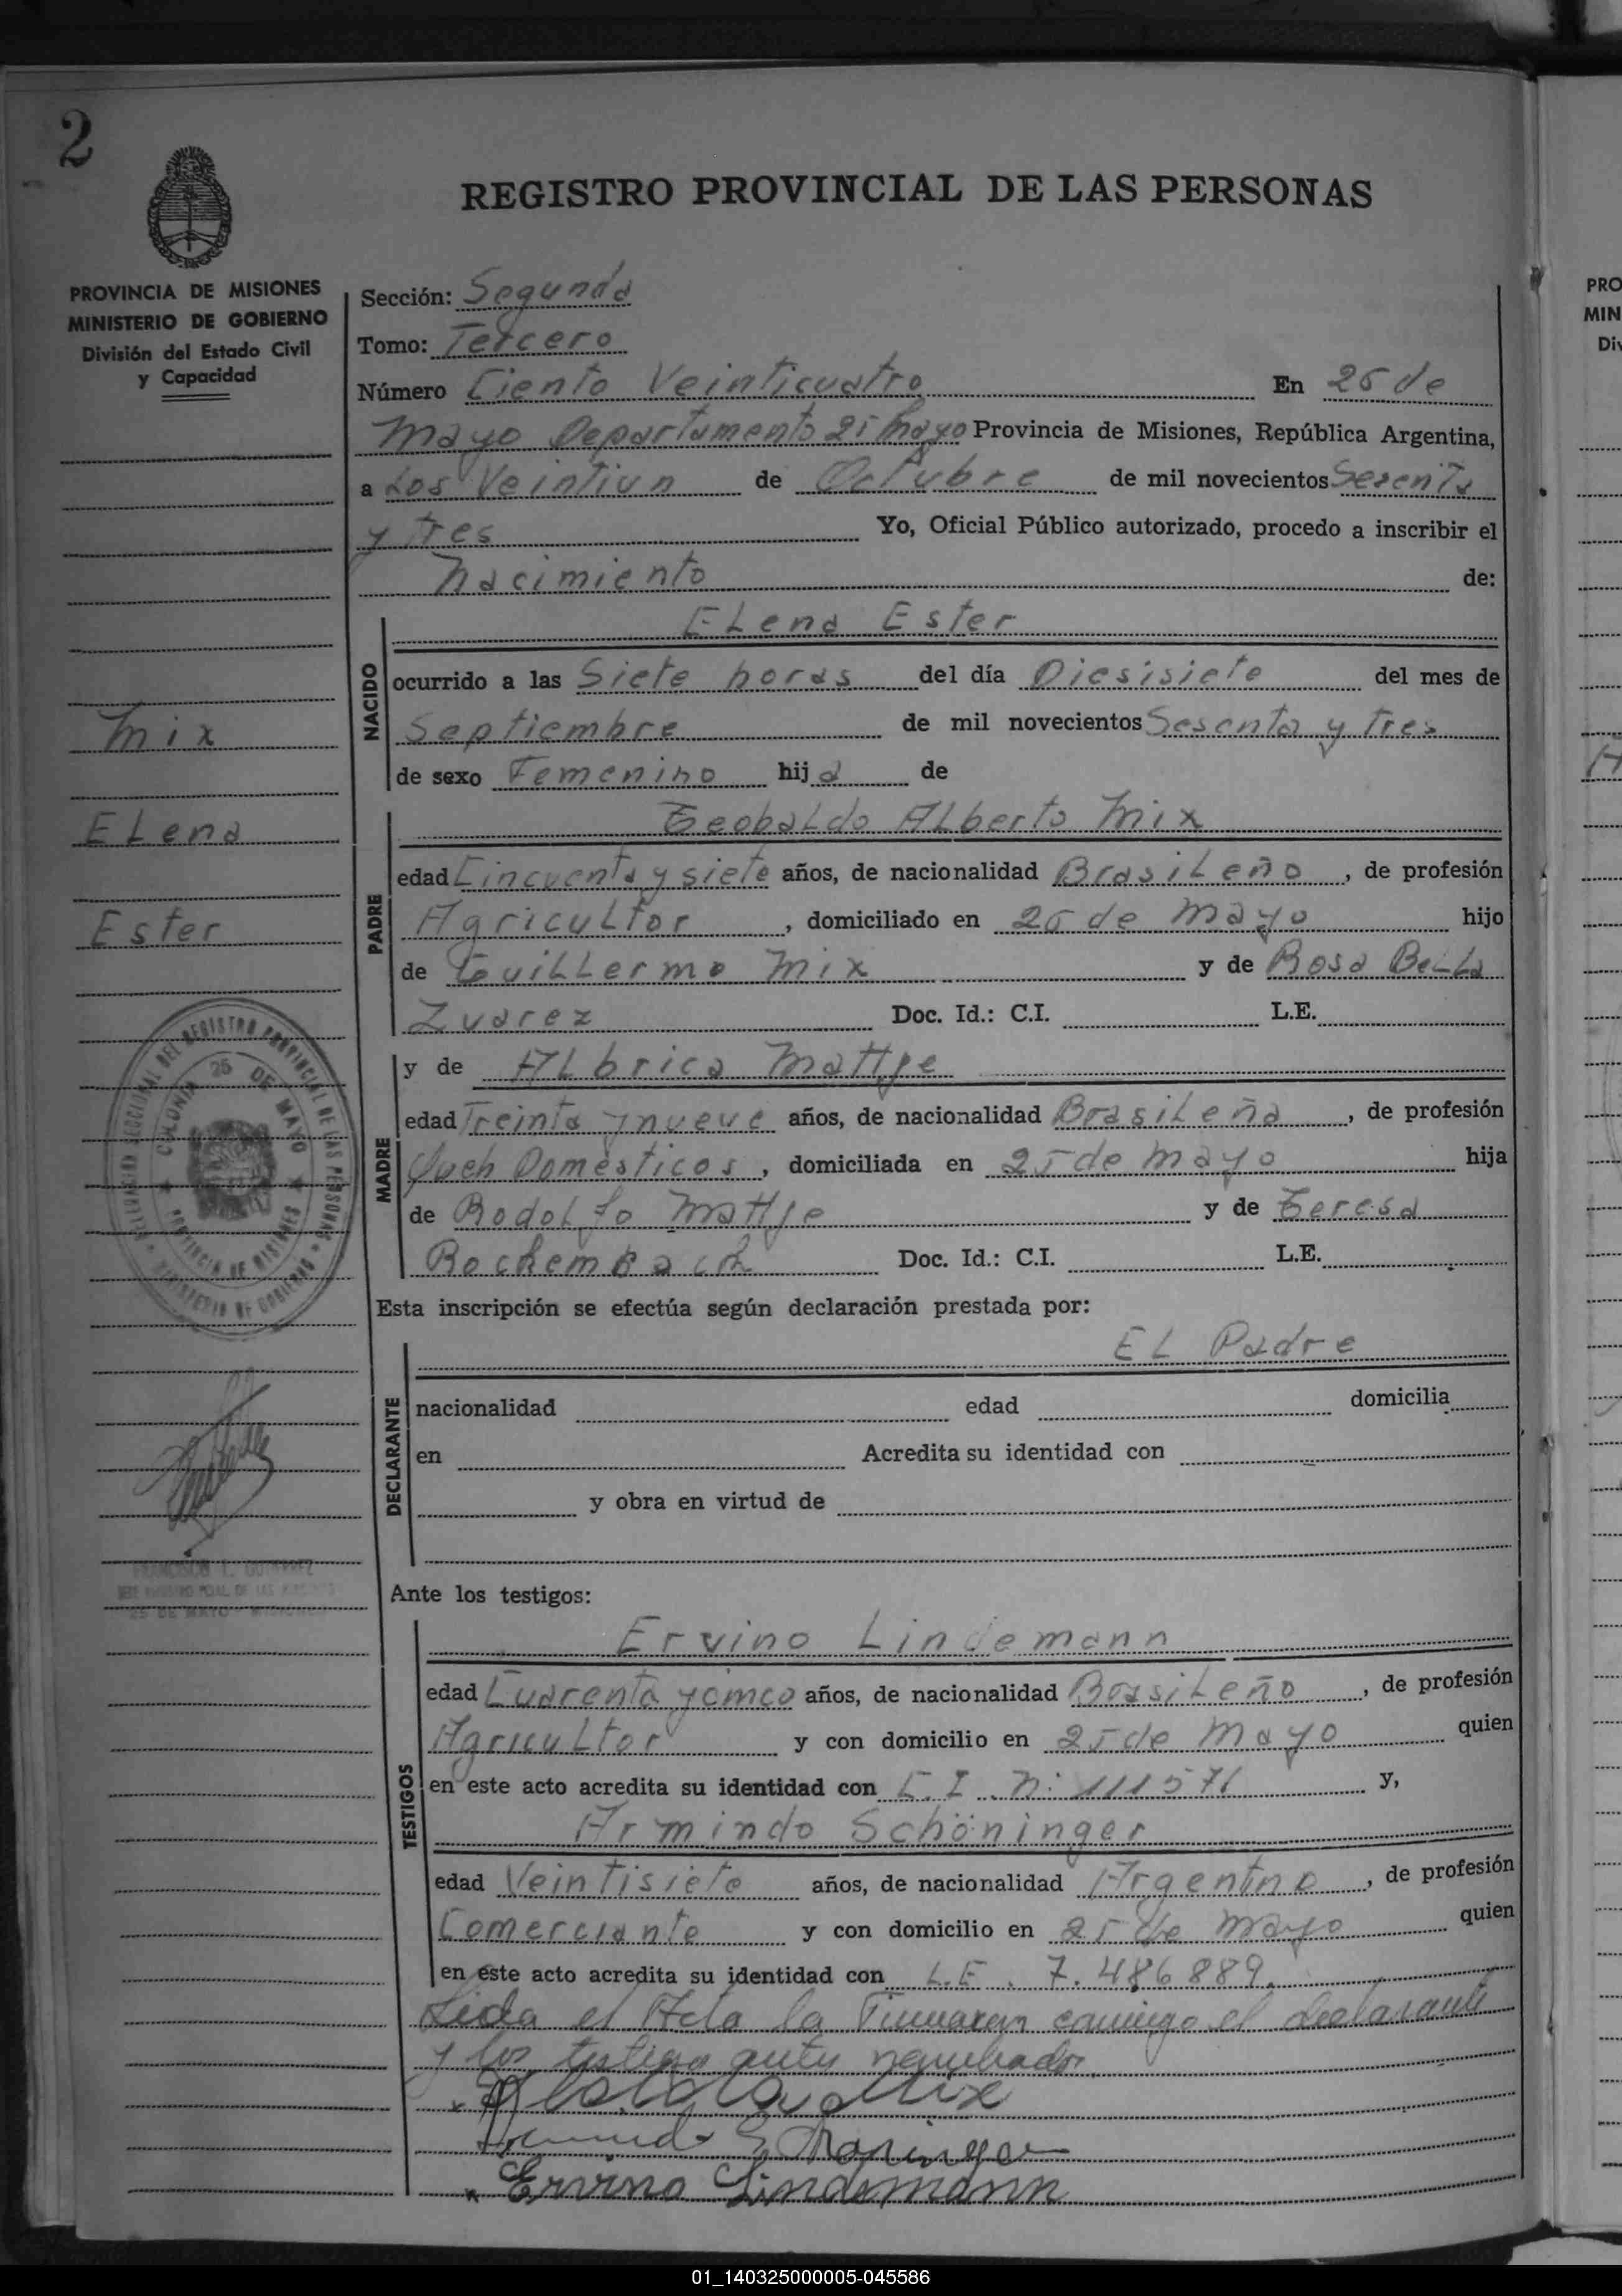 2
REGISTRO PROVINCIAL DE LAS PERSONAS
PROVINCIA DE MISIONES
MINISTERIO DE GOBIERNO
División del Estado Civil
y Capacidad
Sección: Segunda
Tomo: Tercero
Número Ciento Veinticuatro En 25 de
Mayo Departamento 25 Mayo Provincia de Misiones, República Argentina,
a Los Veintiun de Octubre de mil novecientos Sesenta
y tres Yo, Oficial Público autorizado, procedo a inscribir el
Nacimiento de:
Mix
Elena
Ester
NACIDO
Elena Ester
ocurrido a las Siete horas del día Diesisiete del mes de
Septiembre de mil novecientos Sesenta y Tres
de sexo Femenino hija de
PADRE
Teobaldo Alberto Mix
edad Cincuenta y siete años, de nacionalidad Brasileño, de profesión
Agricultor, domiciliado en 25 de Mayo hijo
de Guillermo Mix y de Rosa Bella
Zuarez Doc. Id.: C.I. L.E.
MADRE
y de Albrica Mattje
edad Treinta y nueve años, de nacionalidad Brasileña, de profesión
Queh Domésticos, domiciliada en 25 de Mayo hija
de Rodolfo Mattje y de Teresa
Rockembach Doc. Id.: C.I. L.E.
COLONIA 25 DE MAYO
PROVINCIA DE MISIONES
MINISTERIO DE GOBIERNO
Esta inscripción se efectúa según declaración prestada por:
DECLARANTE
El Padre
nacionalidad edad domicilia
en Acredita su identidad con
y obra en virtud de
Ante los testigos:
TESTIGOS
Ervino Lindemann
edad Cuarenta y cinco años, de nacionalidad Brasileño, de profesión
Agricultor y con domicilio en 25 de Mayo quien
en este acto acredita su identidad con C.I. Nº 111571 y,
Armindo Schöninger
edad Veintisiete años, de nacionalidad Argentino, de profesión
Comerciante y con domicilio en 25 de Mayo quien
en este acto acredita su identidad con L.E. 7.486889.
Leida el Acta la Firmaron conmigo el declarante
y los testigo antes nombrados
Mix
Ervino Lindemann
01_140325000005-045586